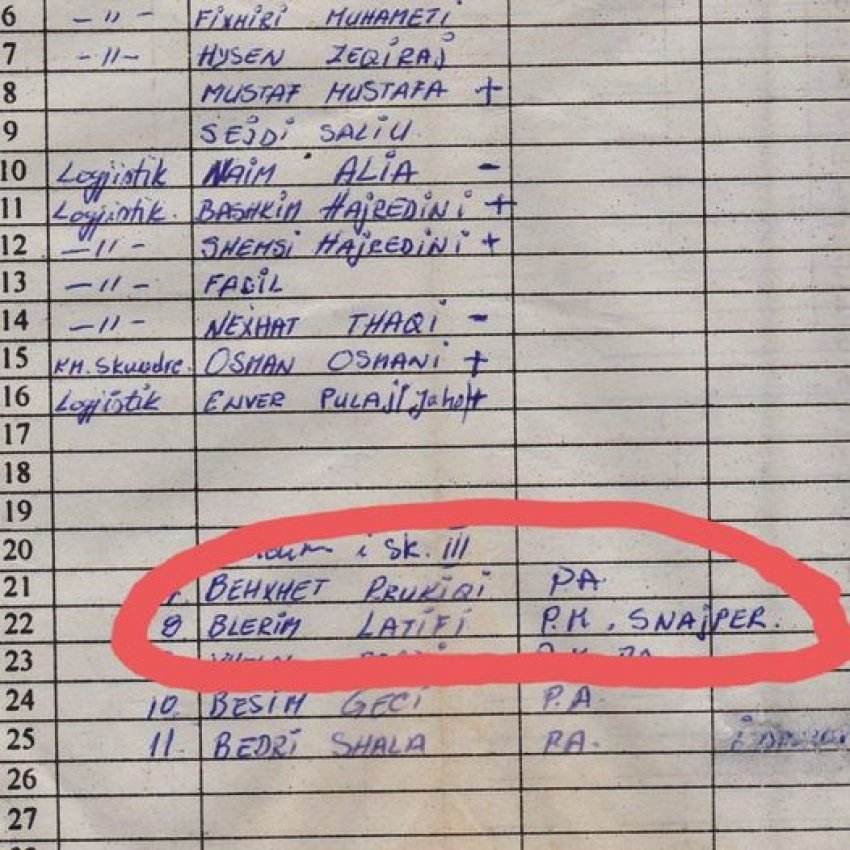 6 -"- FIXHIRI MUHAMETI
7 -"- HYSEN ZEQIRAJ
8 MUSTAF MUSTAFA +
9 SEJDI SALIU
10 Logjistik NAIM ALIA -
11 Logjistik. BASHKIM HAJREDINI +
12 -"- SHEMSI HAJREDINI +
13 -"- FADIL
14 -"- NEXHAT THAQI -
15 KM. Skuadre. OSMAN OSMANI +
16 Logjistik ENVER PULAJ
17
18
19
20 i SK. III
21 BEHXHET PRUKIQI P.A
22 8 BLERIM LATIFI P.M, SNAJPER.
23
24 10. BESIM GECI P.A
25 11. BEDRI SHALA P.A.
26
27